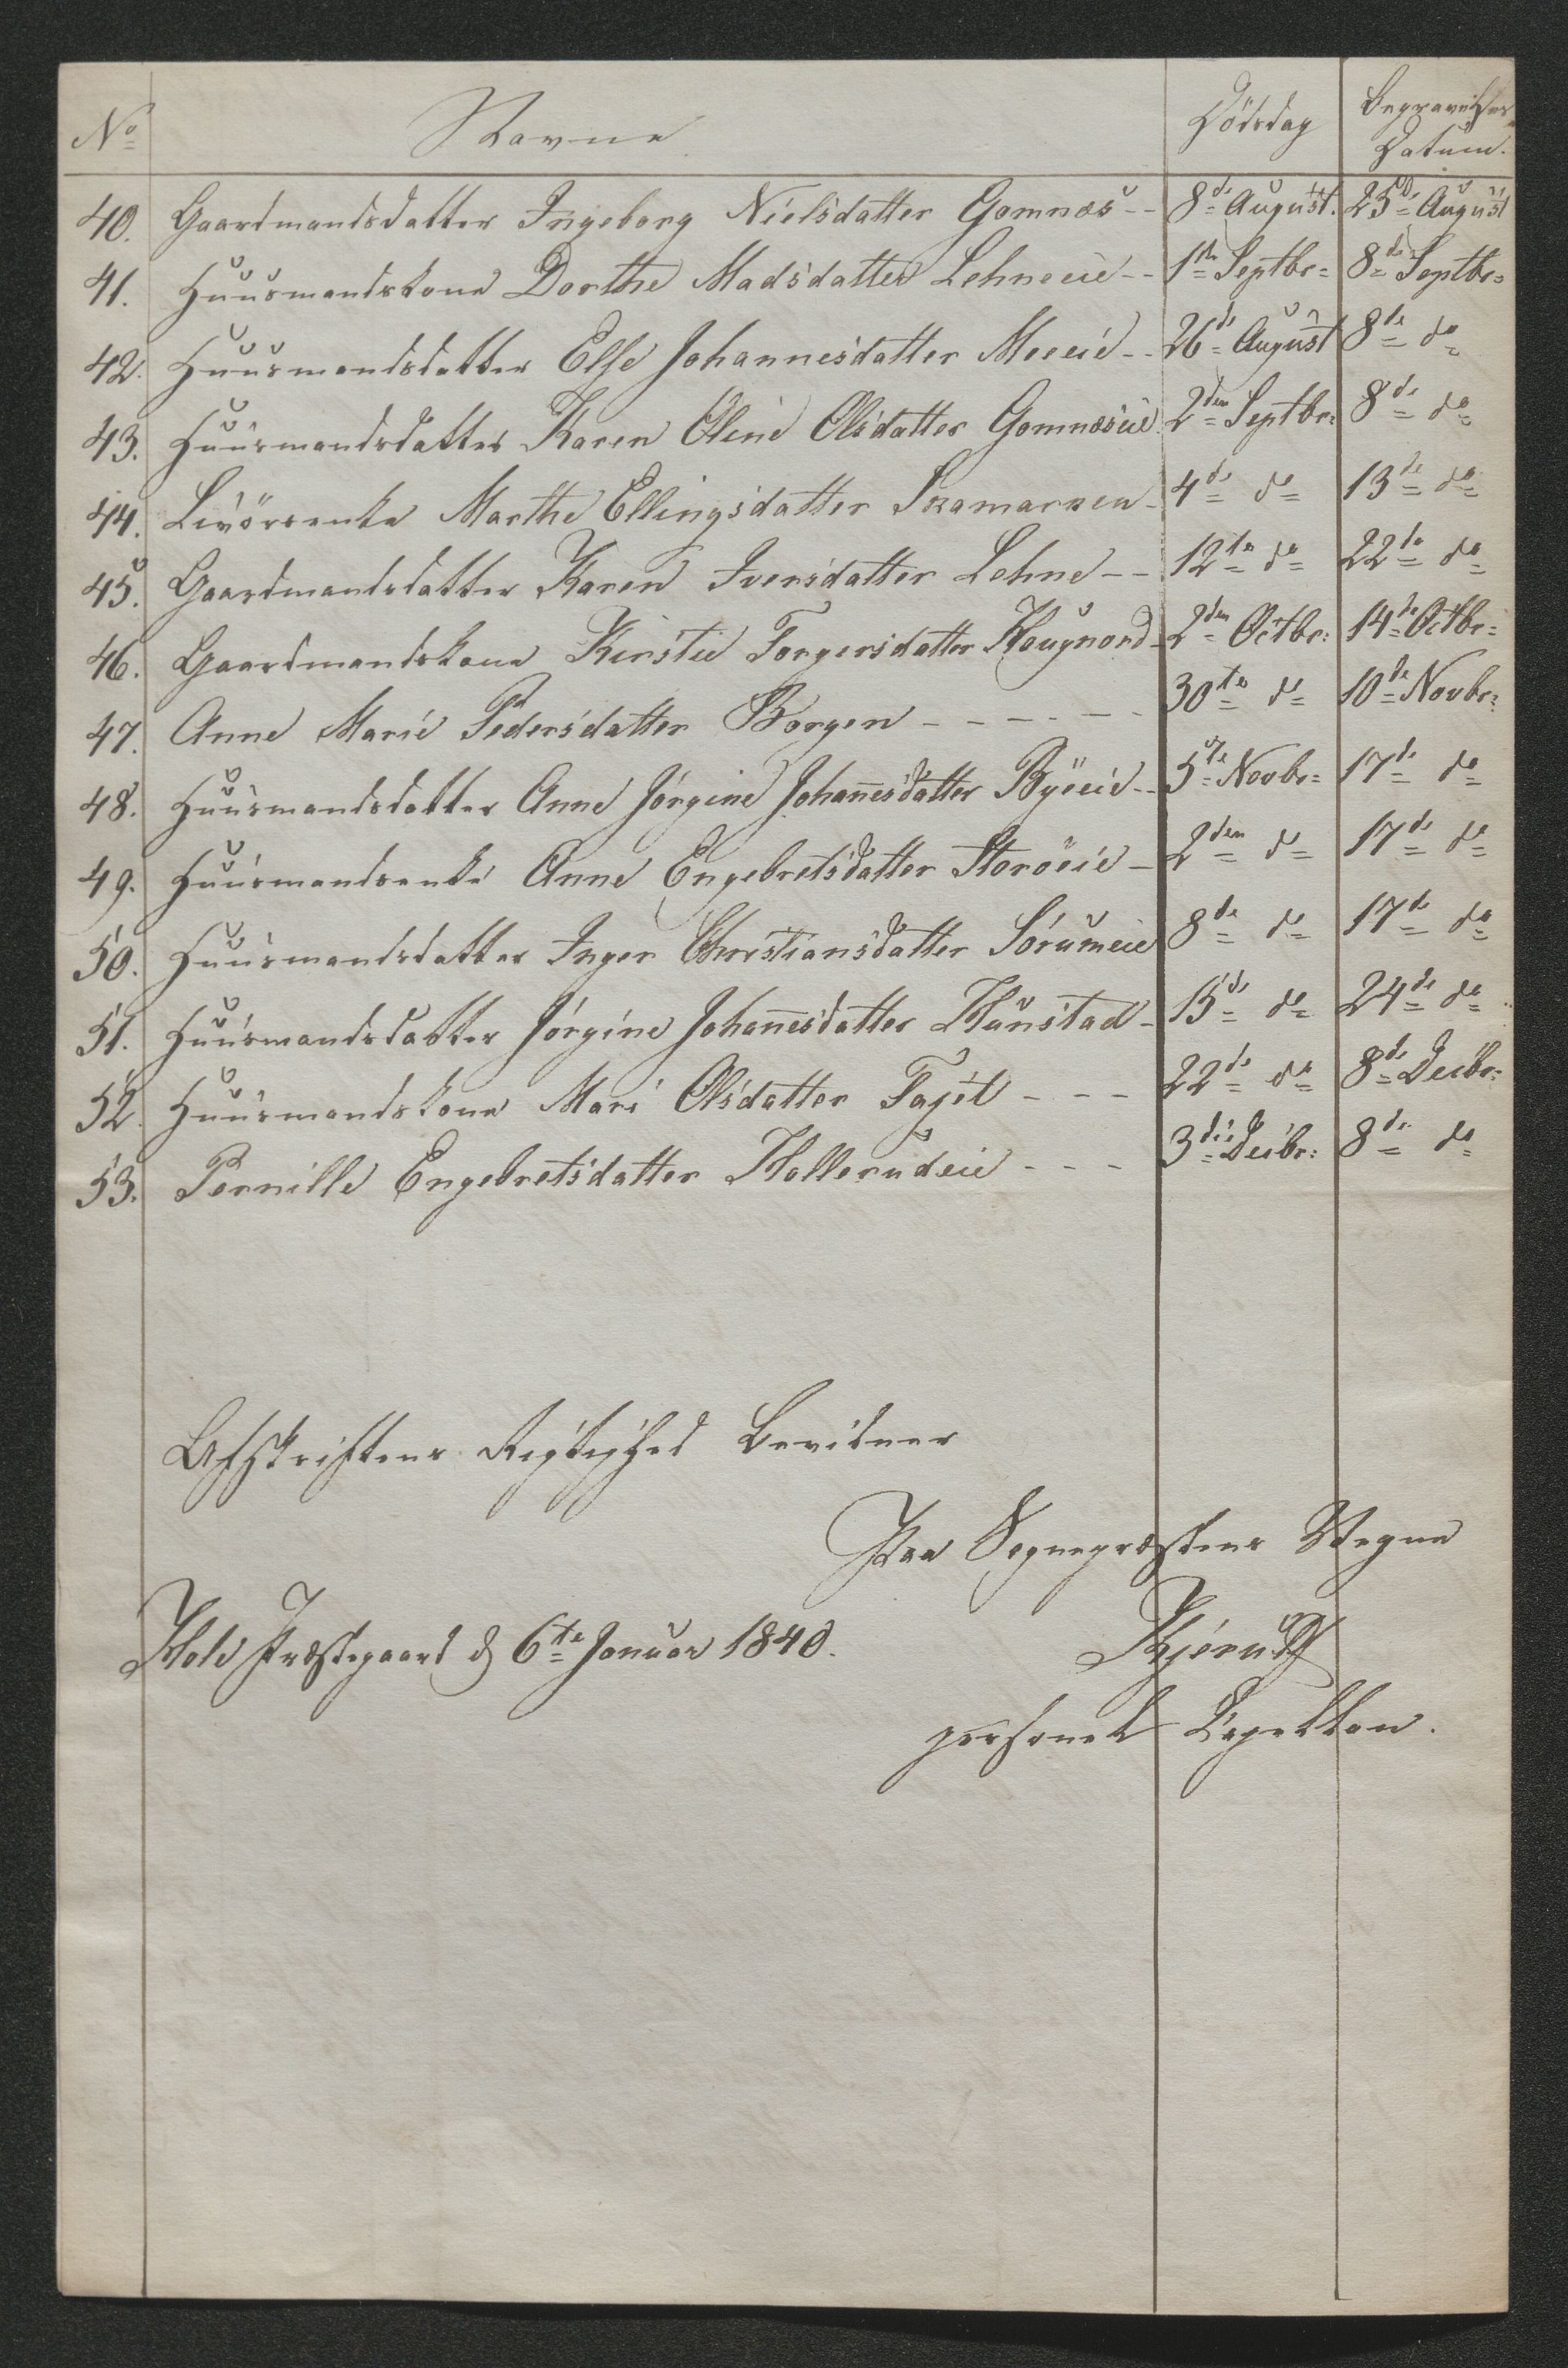 No Navne Dödsdag Begravelses
Datum.
40. Gaardmandsdatter Ingeborg Nielsdatter Gomnæs -- 8de August. 25de August
41. Huusmandskone Dorthe Madsdatter Lehneeie -- 1ste Septbr= 8de Septbr=
42. Huusmandsdatter Else Johannesdatter Moeeie -- 26de August 8de do
43. Huusmandsdatter Karen Oline Olsdatter Gomnæseie 2den Septbr: 8de do
44. Livörsenke Marthe Ellingsdatter - 4de do 13de do
45. Gaardmandsdatter Karen Iversdatter Lehne -- 12te do 22de do
46. Gaardmandskone Kirstie Torgersdatter Hougnord - 2den Octbr: 14de Octbr=
47. Anne Marie Pedersdatter Borgen ----- 30te do 10de Novbr:
48. Huusmandsdatter Anne Jörgine Johannesdatter Byeeie -- 5te Novbr= 17de do
49. Huusmandsenke Anne Engebretsdatter Storöeie - 2den do 17de do
50. Huusmandsdatter Inger Christiansdatter Sörumeie 8de do 17de do
51. Huusmandsdatter Jörgine Johannesdatter - 15de do 24de do
52. Huusmandskone Mari Olsdatter --- 22de do 8de Decbr:
53. Pernille Engebretsdatter Hollerudeie --- 3die Decbr: 8de do
Afskriftens Rigtighed bevidner
Paa Sognepræstens Vegne
Hole Præstegaard d 6te Januar 1840.
Kjerulf
personel Capellan.